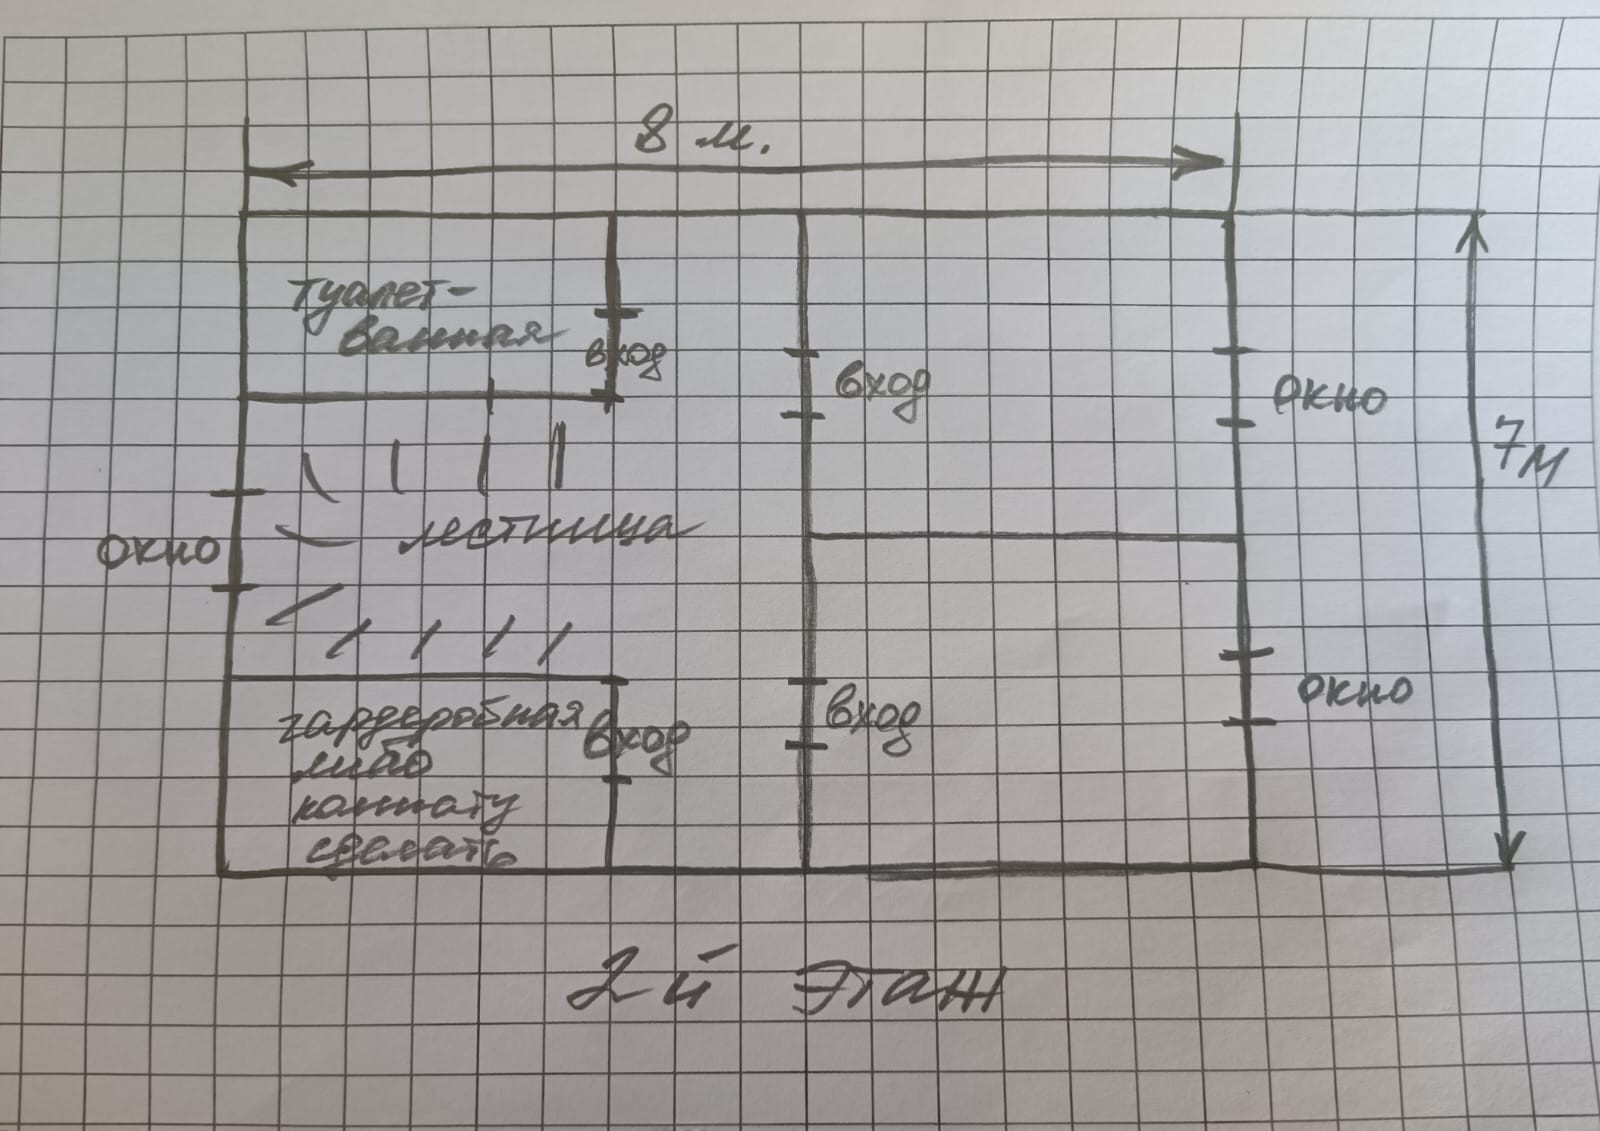 8 м.
туалет-
ванная
вход
вход
окно
7м
окно
лестница
окно
вход
вход
гардеробная
либо
комнату
сделать
2-й этаж